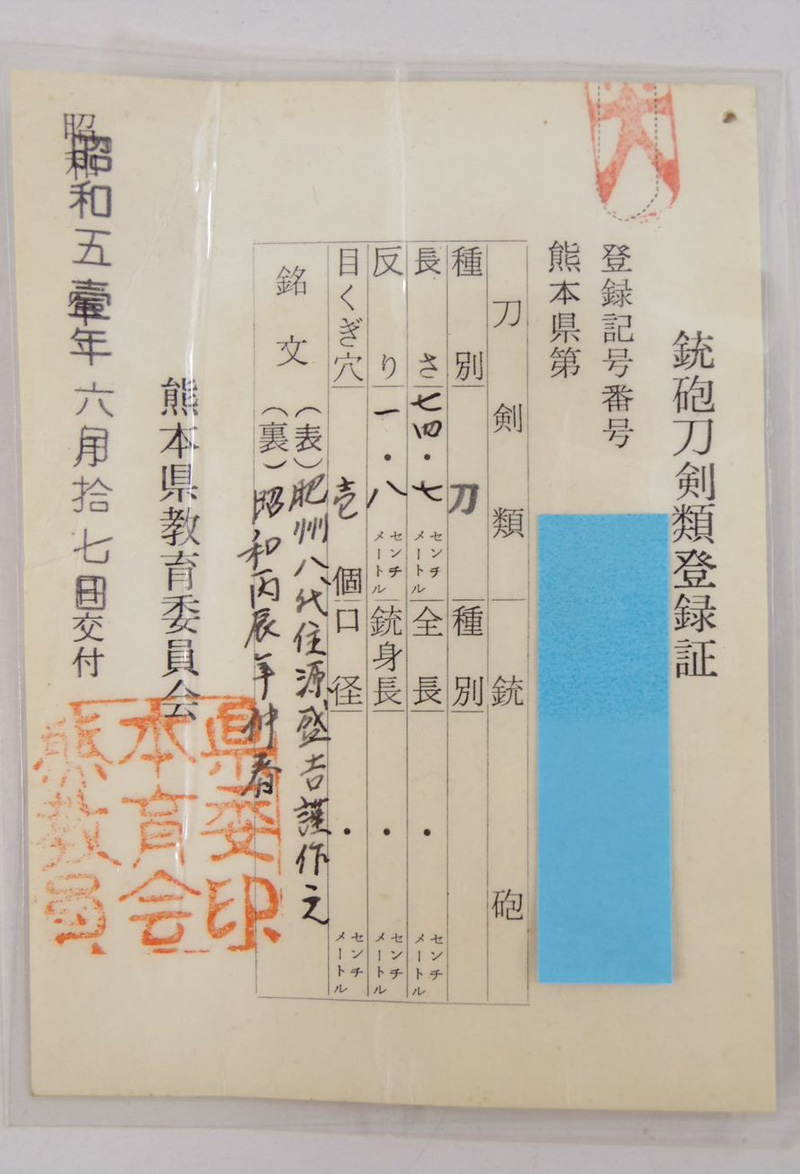 銃砲刀剣類登録証
登録記号番号
熊本県第
刀剣類
銃砲
種別 刀
種別
長さ 七四・七 センチメートル
全長 ・ センチメートル
反り 一・八 センチメートル
銃身長 ・ センチメートル
目くぎ穴 壱個
口径 ・ センチメートル
銘文
(表)肥州八代住源盛吉謹作之
(裏)昭和丙辰年仲春
熊本県教育委員会
昭和五壹年六月拾七日交付
県委印
本育会
熊教員